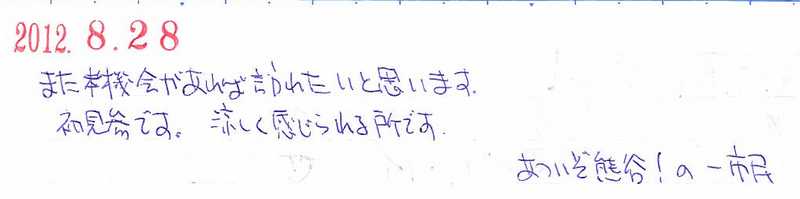 2012. 8.28
また機会があれば訪れたいと思います.
初見参です。 涼しく感じられる所です.
あついぞ熊谷!の一市民